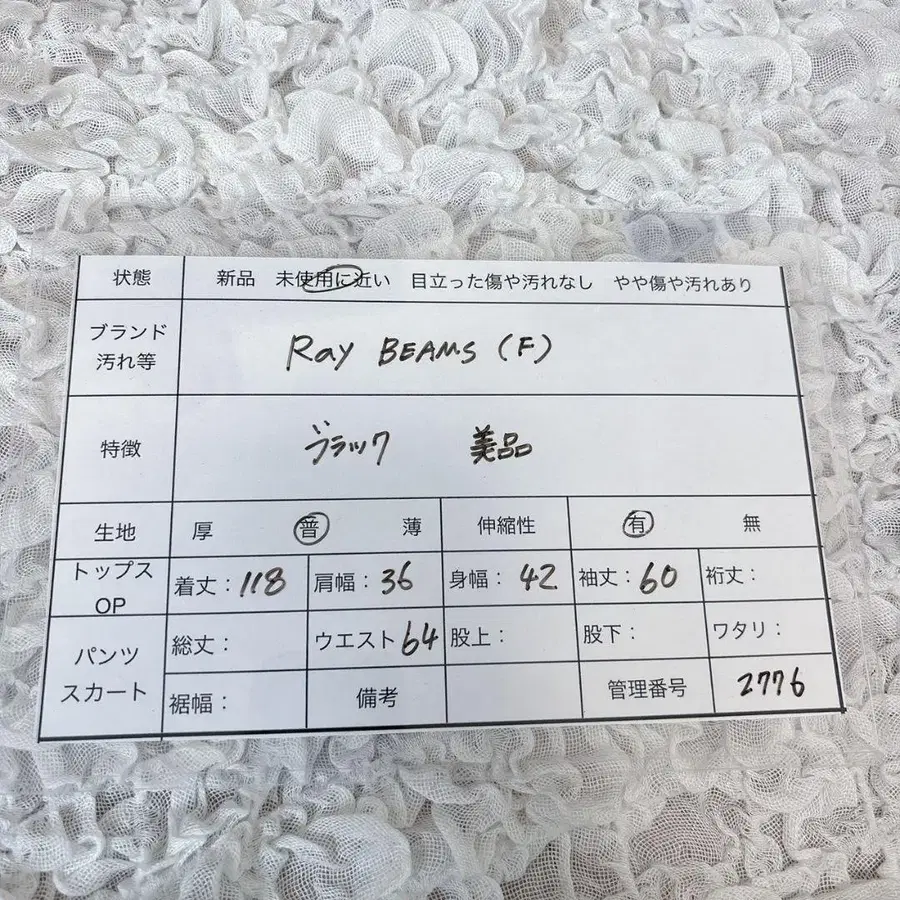 状態 新品 未使用に近い 目立った傷や汚れなし やや傷や汚れあり
ブランド
汚れ等
Ray BEAMS (F)
特徴 ブラック 美品
生地 厚 普 薄 伸縮性 有 無
トップス
OP
着丈：118 肩幅：36 身幅：42 袖丈：60 裄丈：
パンツ
スカート
総丈： ウエスト64 股上： 股下： ワタリ：
裾幅： 備考 管理番号 2776